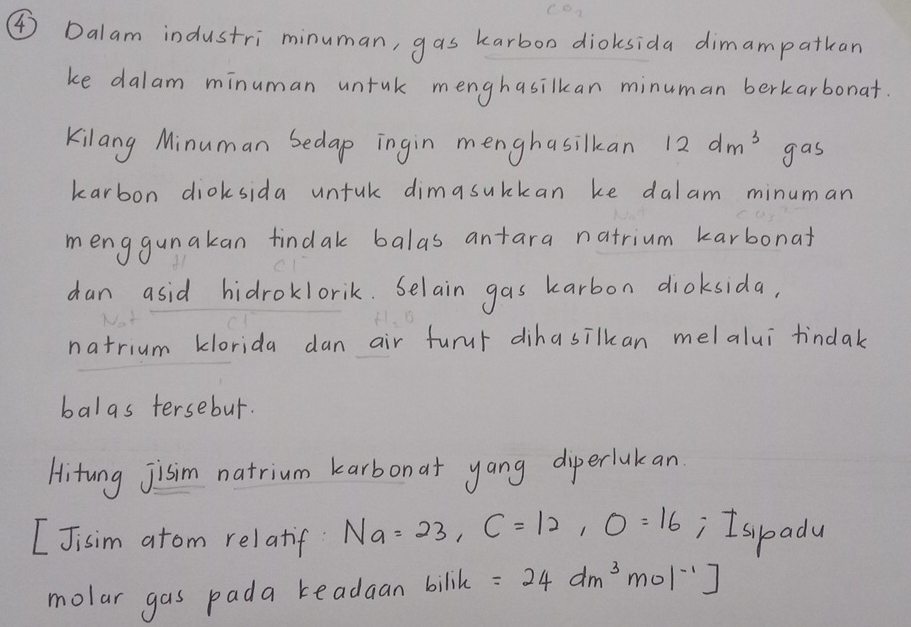 CO₂
④ Dalam industri minuman, gas karbon dioksida dimampatkan
ke dalam minuman untuk menghasilkan minuman berkarbonat.
Kilang Minuman Sedap ingin menghasilkan 12 dm³ gas
karbon dioksida untuk dimasukkan ke dalam minuman
Na+ CO₃²⁻
menggunakan tindak balas antara natrium karbonat
H Cl⁻
dan asid hidroklorik. Selain gas karbon dioksida,
Na+ Cl⁻ H₂O
natrium klorida dan air turut dihasilkan melalui tindak
balas tersebut.
Hitung jisim natrium karbonat yang diperlukan.
[Jisim atom relatif: Na = 23, C = 12, O = 16; Isipadu
molar gas pada keadaan bilik = 24 dm³ mol⁻¹]